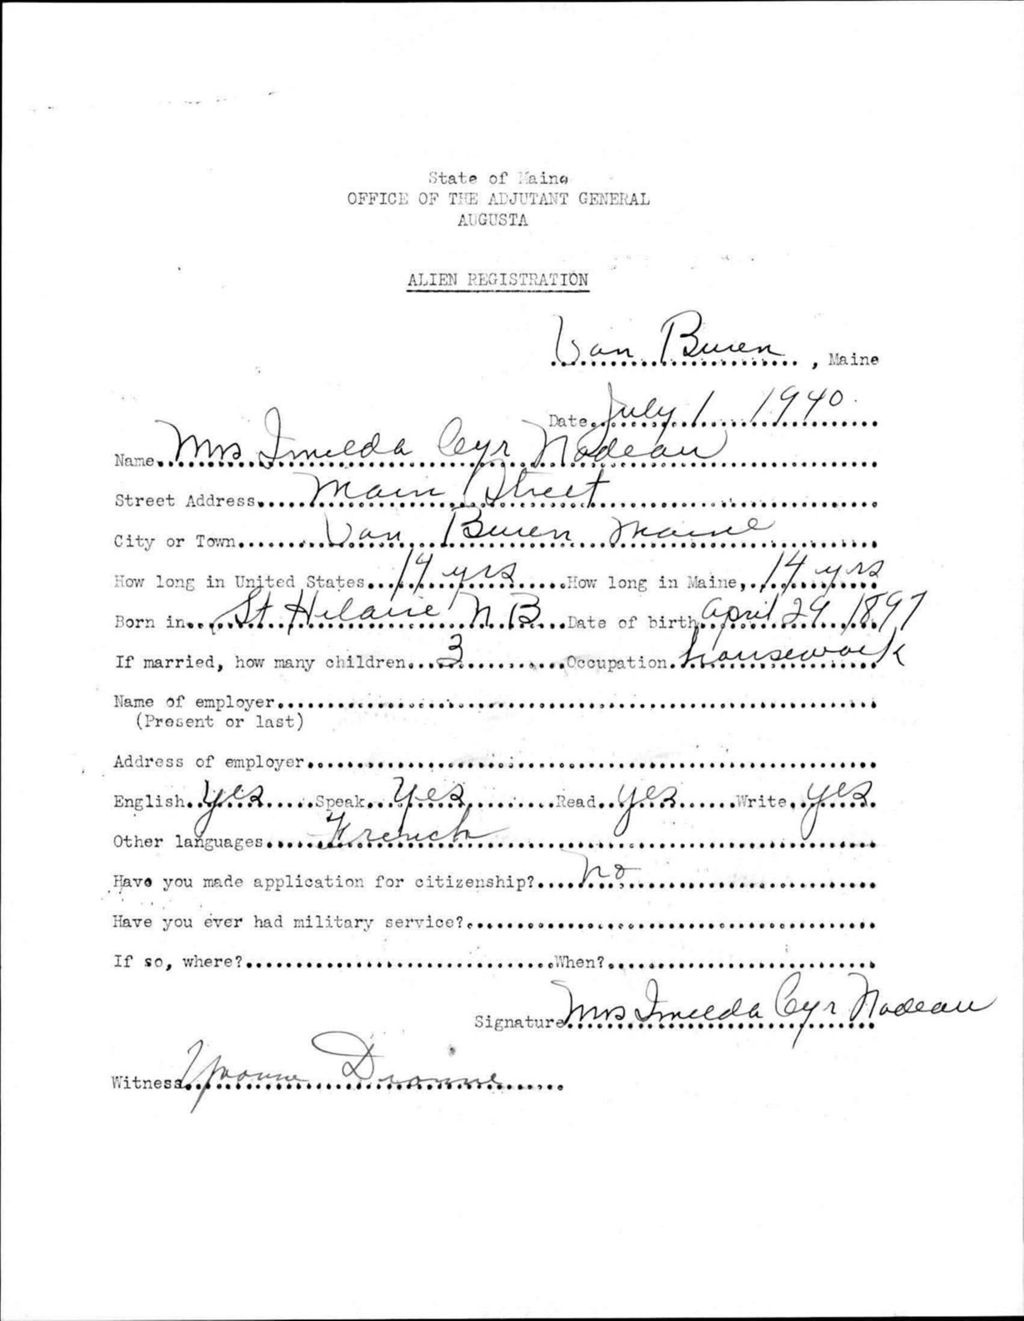 State of Maine
OFFICE OF THE ADJUTANT GENERAL
AUGUSTA
ALIEN REGISTRATION
Van Buren, Maine
Date July 1 1940
Name Mrs Imelda Cyr Nadeau
Street Address Main Street
City or Town Van Buren Maine
How long in United States 14 yrs How long in Maine, 14 yrs
Born in St Hilaire N.B. Date of birth April 29 1897
If married, how many children 3 Occupation housework
Name of employer
(Present or last)
Address of employer
English Yes Speak Yes Read Yes Write Yes
Other languages French
Have you made application for citizenship? No
Have you ever had military service?
If so, where? When?
Signature Mrs Imelda Cyr Nadeau
Witness Yvonne Dionne